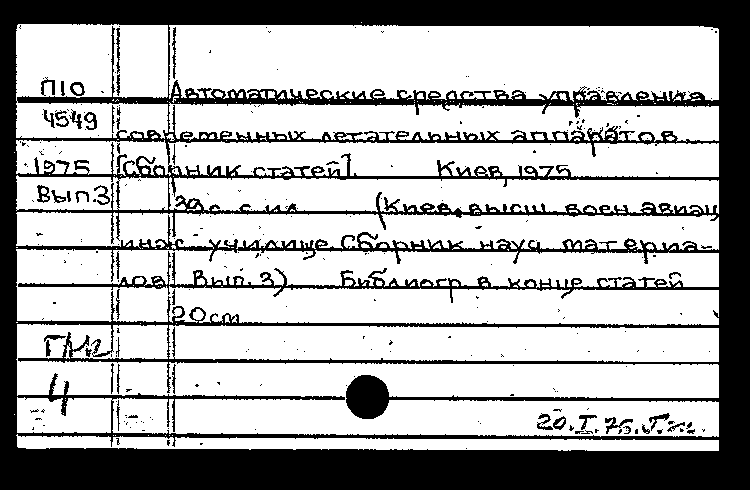 П10 Автоматические средства управления
4549 современных летательных аппаратов
1975 [Сборник статей]. Киев, 1975
Вып.3 39 с. с ил. (Киев. высш. воен. авиац
инж. училище. Сборник науч. материа-
лов Вып. 3). Библиогр. в конце статей
20 см
4